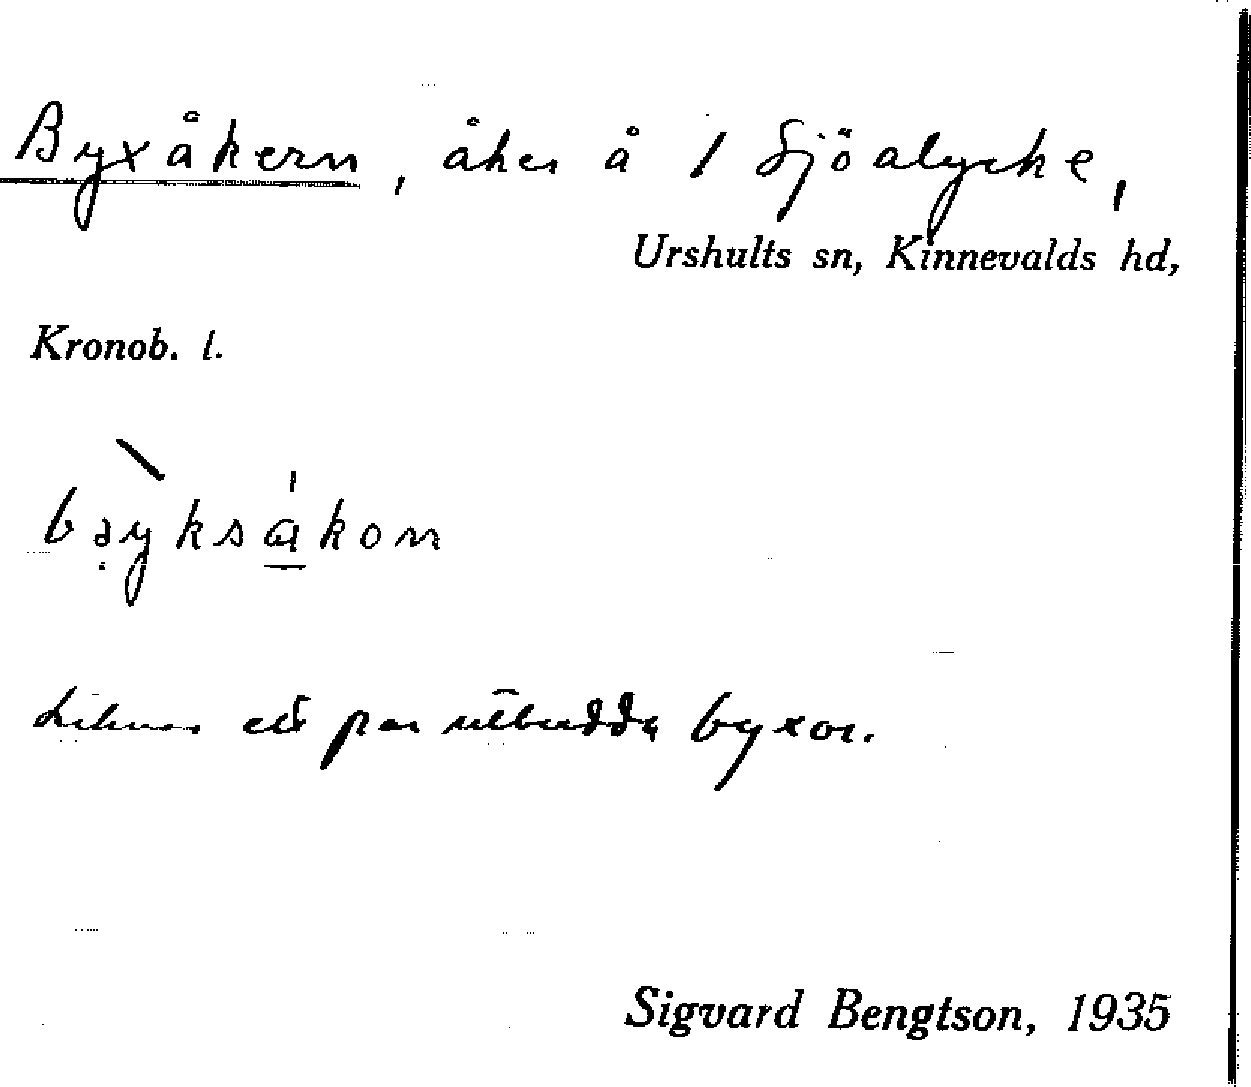 Byxåkern, åker å 1 Sjöalycke,
Urshults sn, Kinnevalds hd,
Kronob. l.
bəyksåkon
Liknar ett par utbredda byxor.
Sigvard Bengtson, 1935